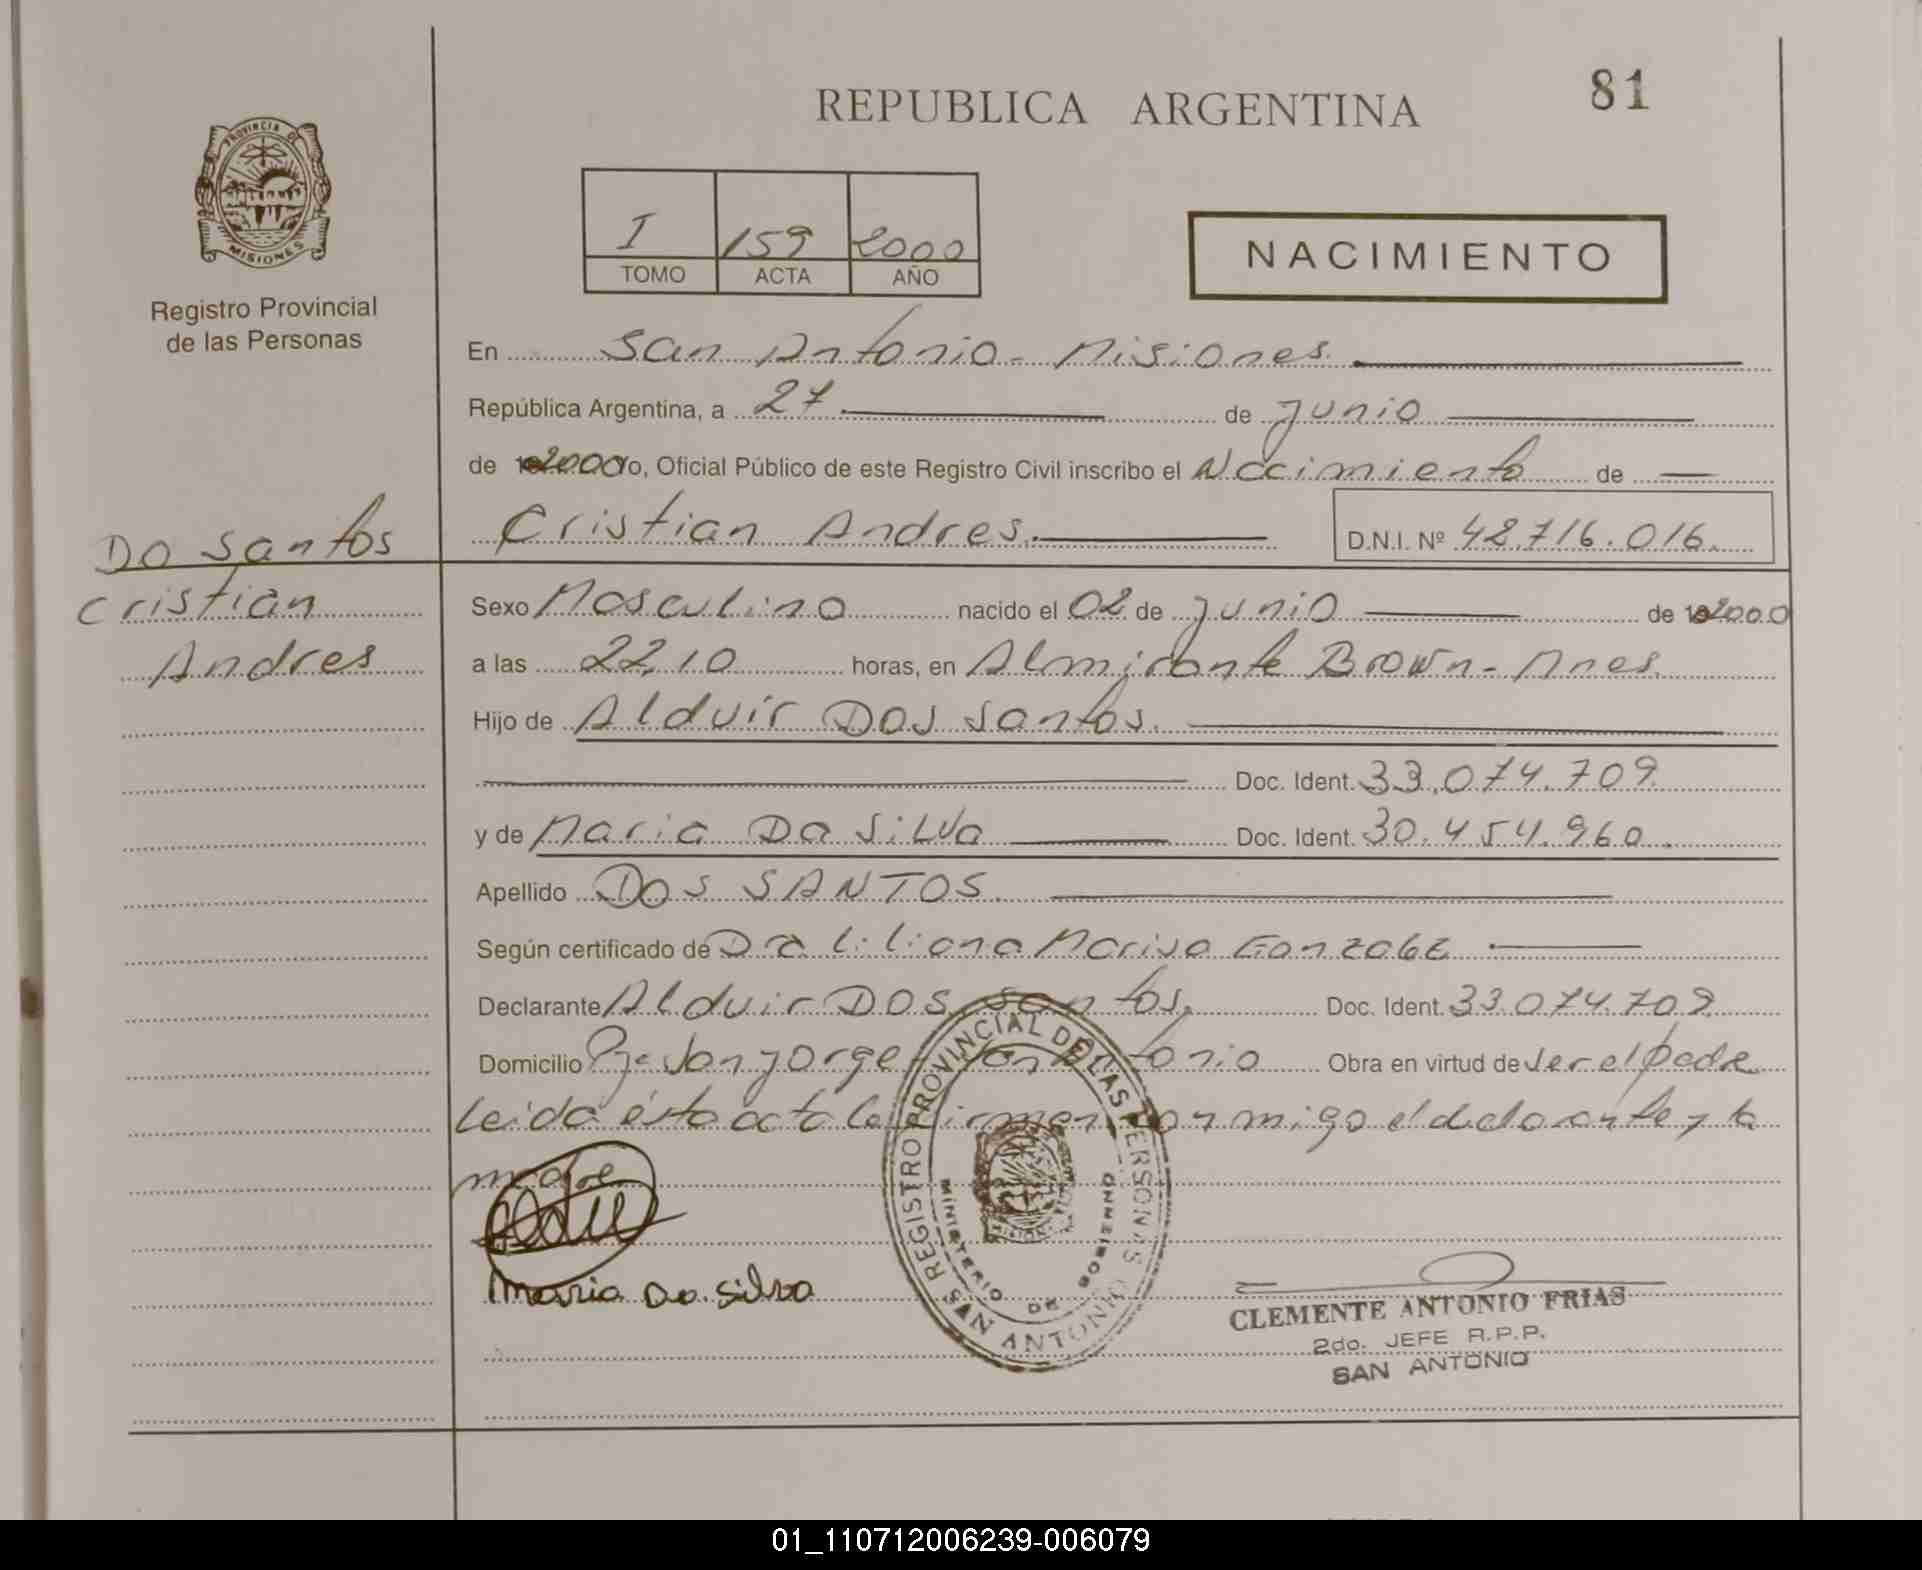 81
REPUBLICA ARGENTINA
PROVINCIA DE MISIONES
Registro Provincial
de las Personas
I 159 2000
TOMO ACTA AÑO
NACIMIENTO
En San Antonio - Misiones.
República Argentina, a 27 de junio
de 2000 Yo, Oficial Público de este Registro Civil inscribo el Nacimiento de
Cristian Andres. D.N.I. Nº 42.716.016.
Do Santos
Cristian
Andres
Sexo Masculino nacido el 02 de junio de 2000
a las 22,10 horas, en Almirante Brown - Mnes.
Hijo de Alduir Dos Santos.
Doc. Ident. 33.074.709.
y de Maria Da Silva Doc. Ident. 30.454.960.
Apellido DOS SANTOS.
Según certificado de Dra Liliana Marisa Gonzalez
Declarante Alduir Dos Santos. Doc. Ident. 33.074.709
Domicilio Pje San Jorge - San Antonio Obra en virtud de ser el padre
Leida ésta acta la firman conmigo el declarante y la
madre
Maria Da Silva
REGISTRO PROVINCIAL DE LAS PERSONAS
MINISTERIO DE GOBIERNO
SAN ANTONIO
CLEMENTE ANTONIO FRIAS
2do. JEFE R.P.P.
SAN ANTONIO
01_110712006239-006079